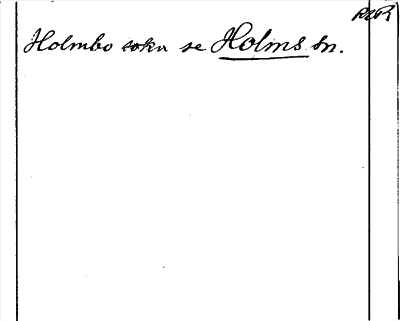 Holmbo soku se Holms sn.